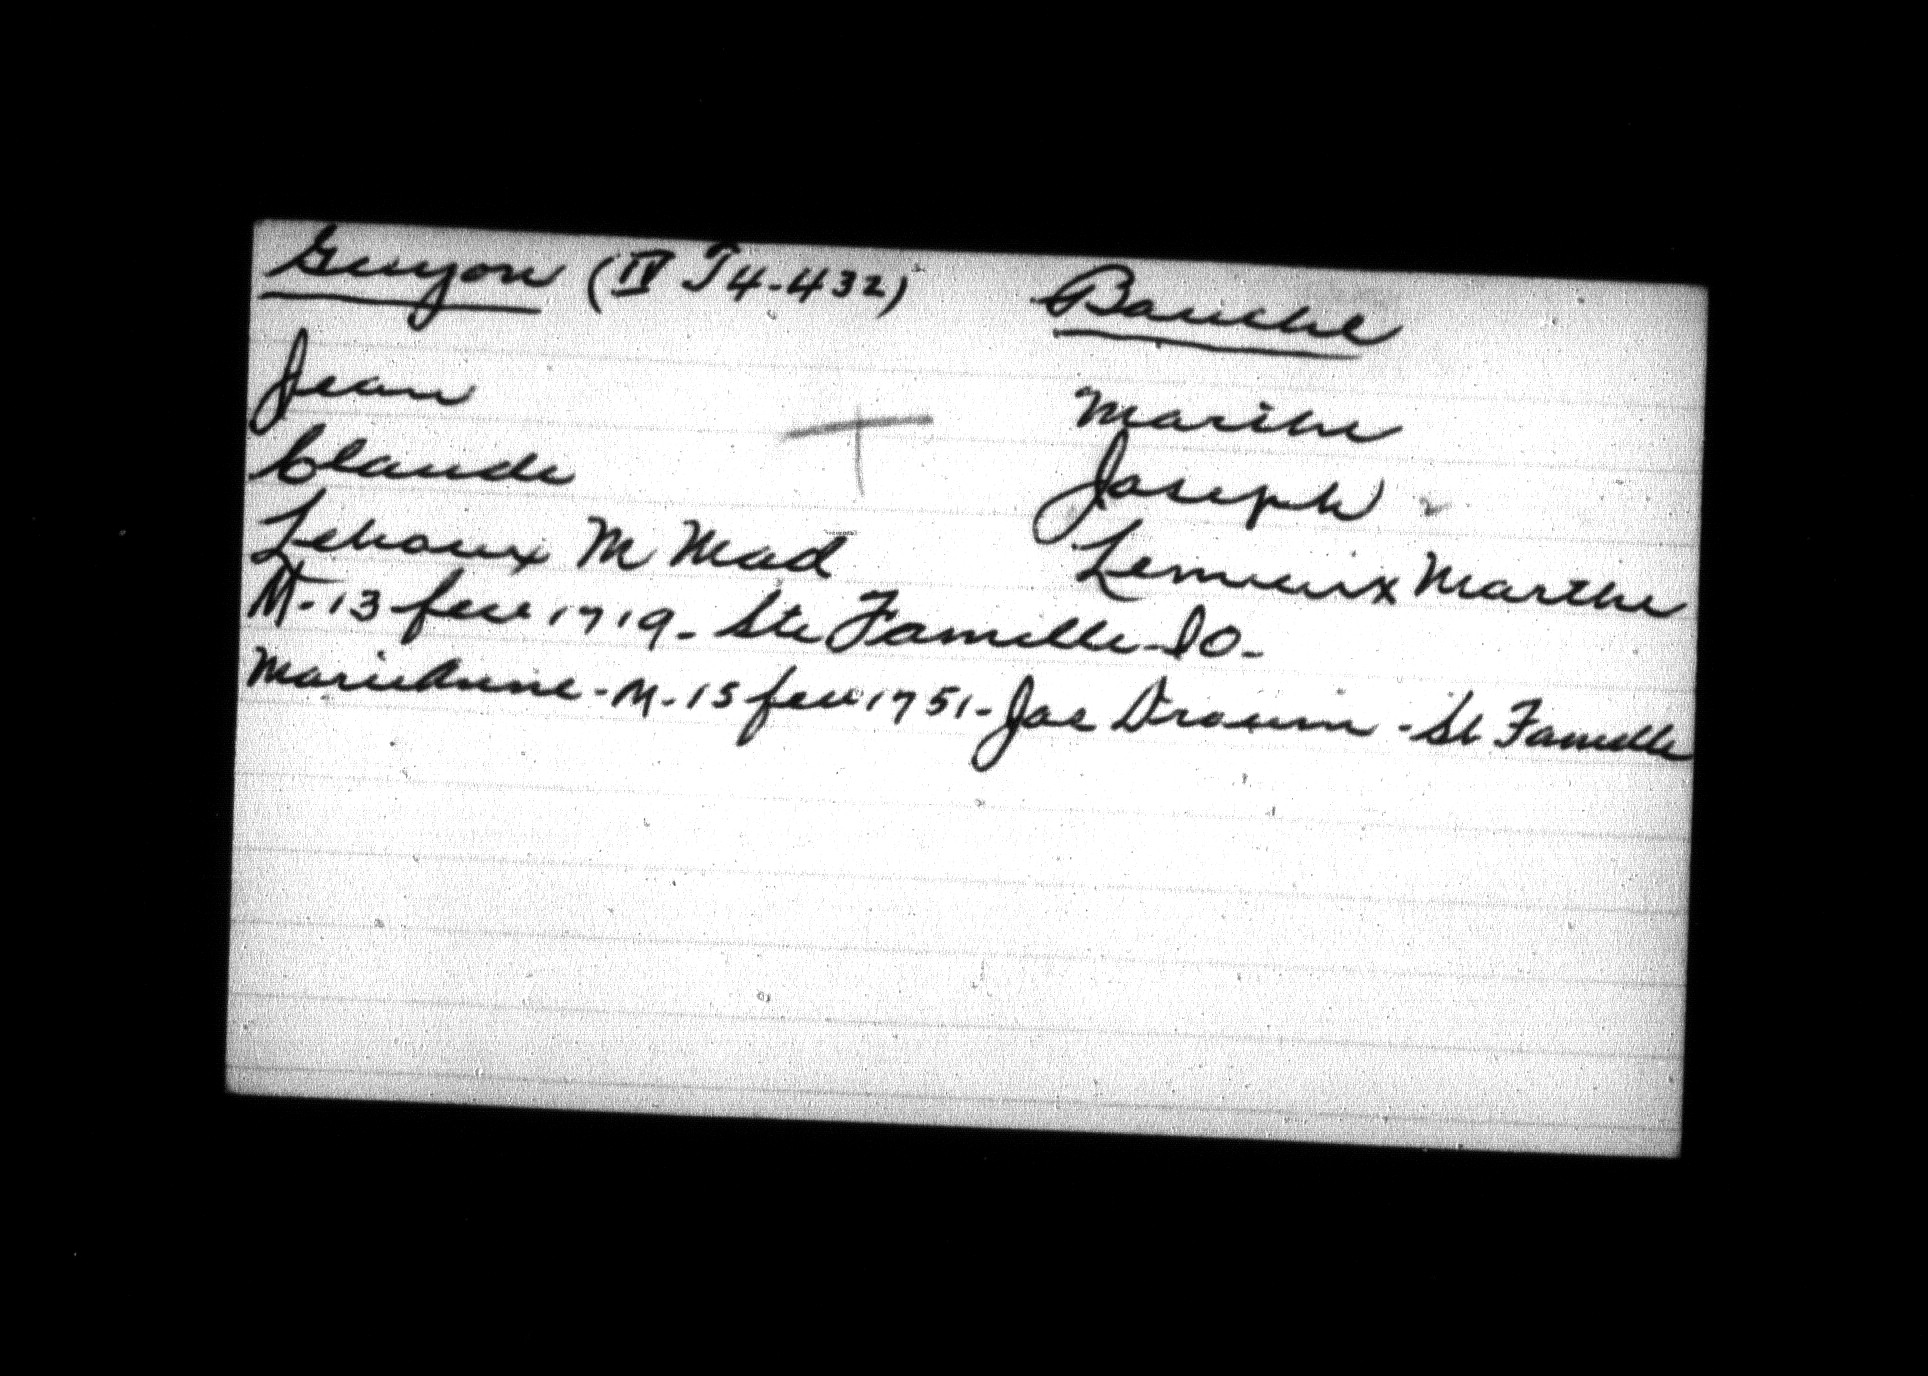 Guyon (IV T4-432) Bauché
Jean Marthe
Claude Joseph
Lehoux M Mad Lemieux Marthe
M-13 fev 1719-Ste Famille-IO-
Marie Anne-M-15 fev 1751-Jos Drouin-St Famille